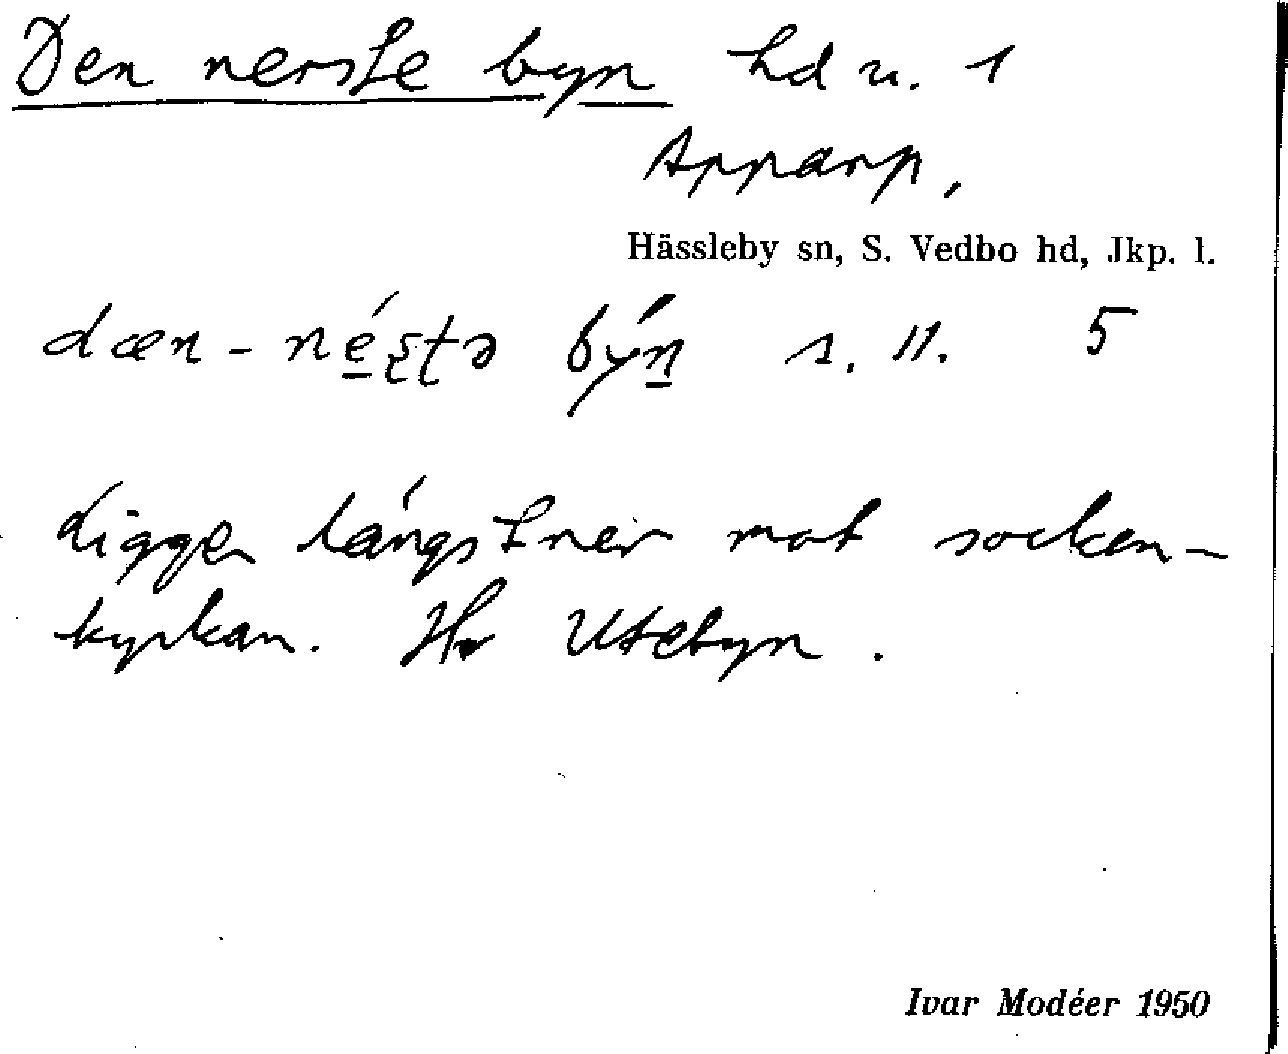 Den nerste byn hd u. 1
Apparp,
Hässleby sn, S. Vedbo hd, Jkp. l.
dæn-né̱ʂʈə býn̲ s. 11. 5
Ligger längst ner mot socken-
kyrkan. Hr Utebyn.
Ivar Modéer 1950